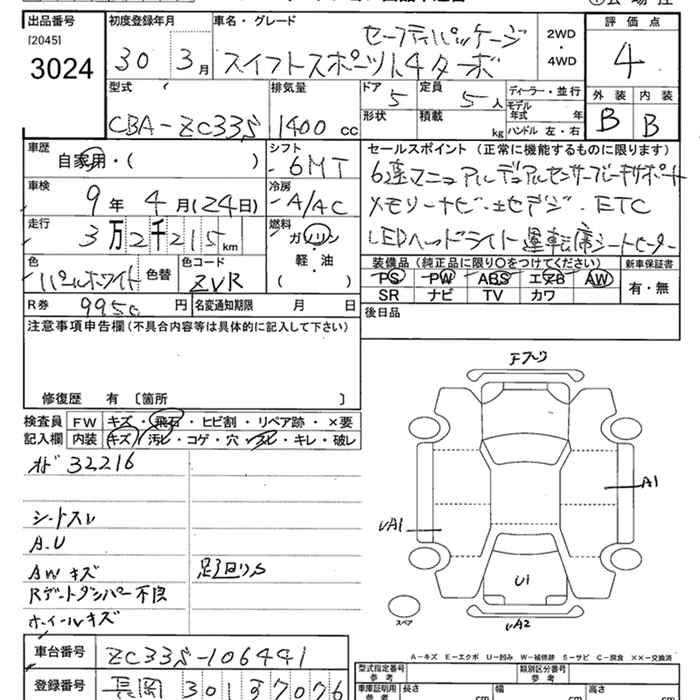 出品番号 初度登録年月 車名・グレード 評価点
[2045]
3024
30 3月
スイフトスポーツ1.4ターボ
セーフティパッケージ
2WD
・
4WD
4
型式 排気量 ドア 定員 ディーラー・並行 外装 内装
CBA-ZC33S 1400 cc 5 5人
モデル年式 年
形状 積載 kg ハンドル 左・右
B B
車歴 シフト セールスポイント (正常に機能するものに限ります)
自家用・( ) 6MT
6速マニュアル デュアルセンサーブレーキサポート
車検 冷房
9年 4月(24日) A/AC
メモリーナビ・地デジ・ETC
走行 燃料
3万2千215km ガソリン
軽・油
( )
LEDヘッドライト 運転席シートヒーター
色 色替 色コード
パールホワイト ZVR
装備品 (純正品に限り○をつけてください) 新車保証書
PS PW ABS エアB AW 有・無
SR ナビ TV カワ
R券 9950 円 名変通知期限 月 日
後日品
注意事項申告欄(不具合内容等は具体的に記入して下さい)
修復歴 有 〔箇所 〕
検査員 FW キズ・飛石・ヒビ割・リペア跡・×要
記入欄 内装 キズ・汚レ・コゲ・穴・スレ・キレ・破レ
オド 32216
シートスレ
A.U
AWキズ
Rゲートダンパー不良
ホイールキズ
足回りS
Fフーク
A1
UA1
U1
UA2
スペア
A-キズ E-エクボ U-凹み W-補修跡 S-サビ C-腐食 ××-交換済
車台番号 ZC33S-106441
登録番号 長岡 301
型式指定番号 参考 類別区分番号 参考
車庫証明用 参考 長さ cm 幅 cm 高さ cm